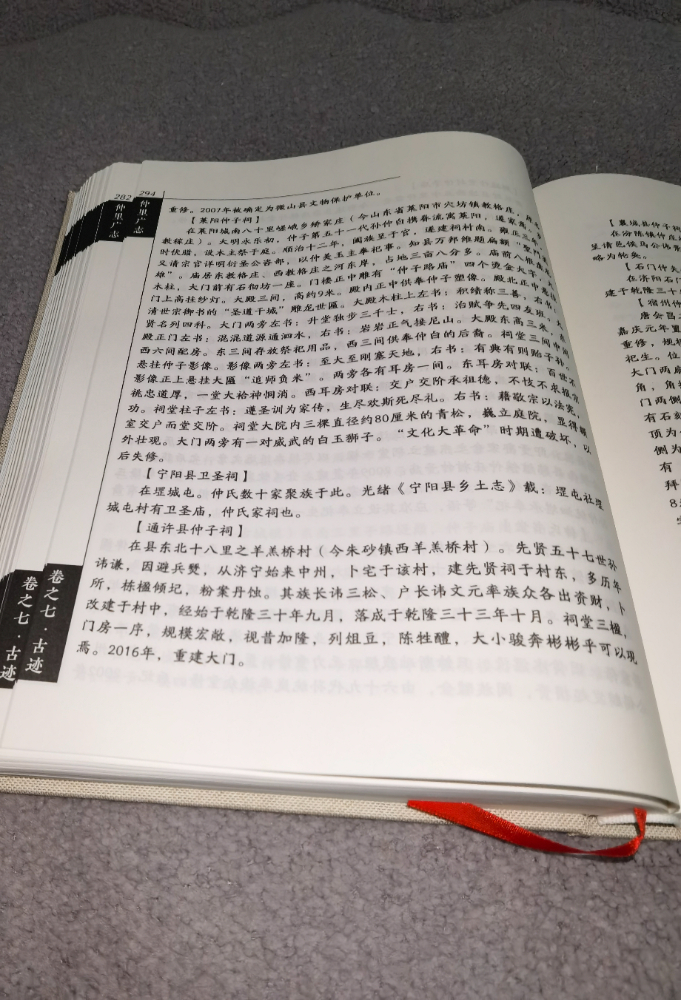 282
294
仲里广志
仲里广志
重修。2007年被确定为微山县文物保护单位。
【莱阳仲子祠】
在莱阳城南八十里嵯峨乡矫家庄（今山东省莱阳市穴坊镇教格庄，
教稼庄）。大明永乐初，仲子第五十一代孙仲白携眷流寓莱阳，遂家焉。
时伏腊，设木主祭于庭。顺治十二年，阖族呈于官，遂建祠村南。雍正
又请宗官详明衍圣公咨部，以仲美玉主奉祀事。知县万邦维题扁额
雄”。庙居东教格庄、西教格庄之河东岸，占地三亩八分多。庙前八根
木柱，大门前有石彻坊一座。门楼正中雕有“仲子路庙”四个烫金大字，大
门上高挂纱灯。大殿三间，高约9米。殿内正中供奉仲子塑像。殿北正中悬挂
清世宗御书的“圣道干城”雕龙世匾。大殿木柱上左书：积绩称三善，右书：
贤名列四科。大门两旁左书：升堂独步三千士，右书：治赋争先四友班。大
殿正门左书：混混道源通泗水，右书：岩岩正气接尼山。大殿东高三米，东
西六间配房。东三间存放祭祀用品，西三间供奉仲白的后裔。祠堂三间中间
悬挂仲子影像。影像两旁左书：至大至刚塞天地，右书：有典有则贻子孙。
影像正上悬挂大匾“追师负米”。两旁各有耳房一间。东耳房对联：百世不
祧忠道厚，一堂大袷神悯消。西耳房对联：交户交阶承祖德，不忮不求报宗
功。祠堂柱子左书：遵圣训为家传，生尽欢斯死尽礼。右书：藉敬宗以法宪，
室交户而堂交阶。祠堂大院内三棵直径约80厘米的青松，巍立庭院，显得
外壮观。大门两旁有一对威武的白玉狮子。“文化大革命”时期遭破坏，以
后失修。
【宁阳县卫圣祠】
在堽城屯。仲氏数十家聚族于此。光绪《宁阳县乡土志》载：堽屯社堽
城屯村有卫圣庙，仲氏家祠也。
【通许县仲子祠】
在县东北十八里之羊羔桥村（今朱砂镇西羊羔桥村）。先贤五十七世孙
讳谦，因避兵燹，从济宁始来中州，卜宅于该村，建先贤祠于村东，多历年
所，栋楹倾圮，粉案丹蚀。其族长讳三松、户长讳文元率族众各出资财，卜
改建于村中，经始于乾隆三十年九月，落成于乾隆三十三年十月。祠堂三楹，
门房一序，规模宏敞，视昔加隆，列俎豆，陈牲醴，大小骏奔彬彬乎可以观
焉。2016年，重建大门。
卷之七·古迹
卷之七·古迹
【襄垣县仲子祠
呈请邑侯马公讳
略为轮奂。
【石门仲夫
在济阳石门
建于乾隆三十
【宿州仲
唐会昌
嘉庆元年置
重修，规模
祀生。位
大门两扇
角，角相
门两侧
有石
顶为
侧为
有
拜
8